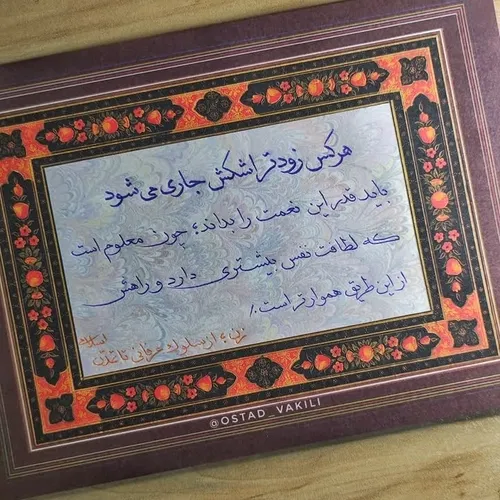 هر کس زودتر اشکش جاری می شود
باید قدر این نعمت را بداند؛ چون معلوم است
که لطافت نفس بیشتری دارد و راهش
از این طریق هموارتر است./
@OSTAD_VAKILI